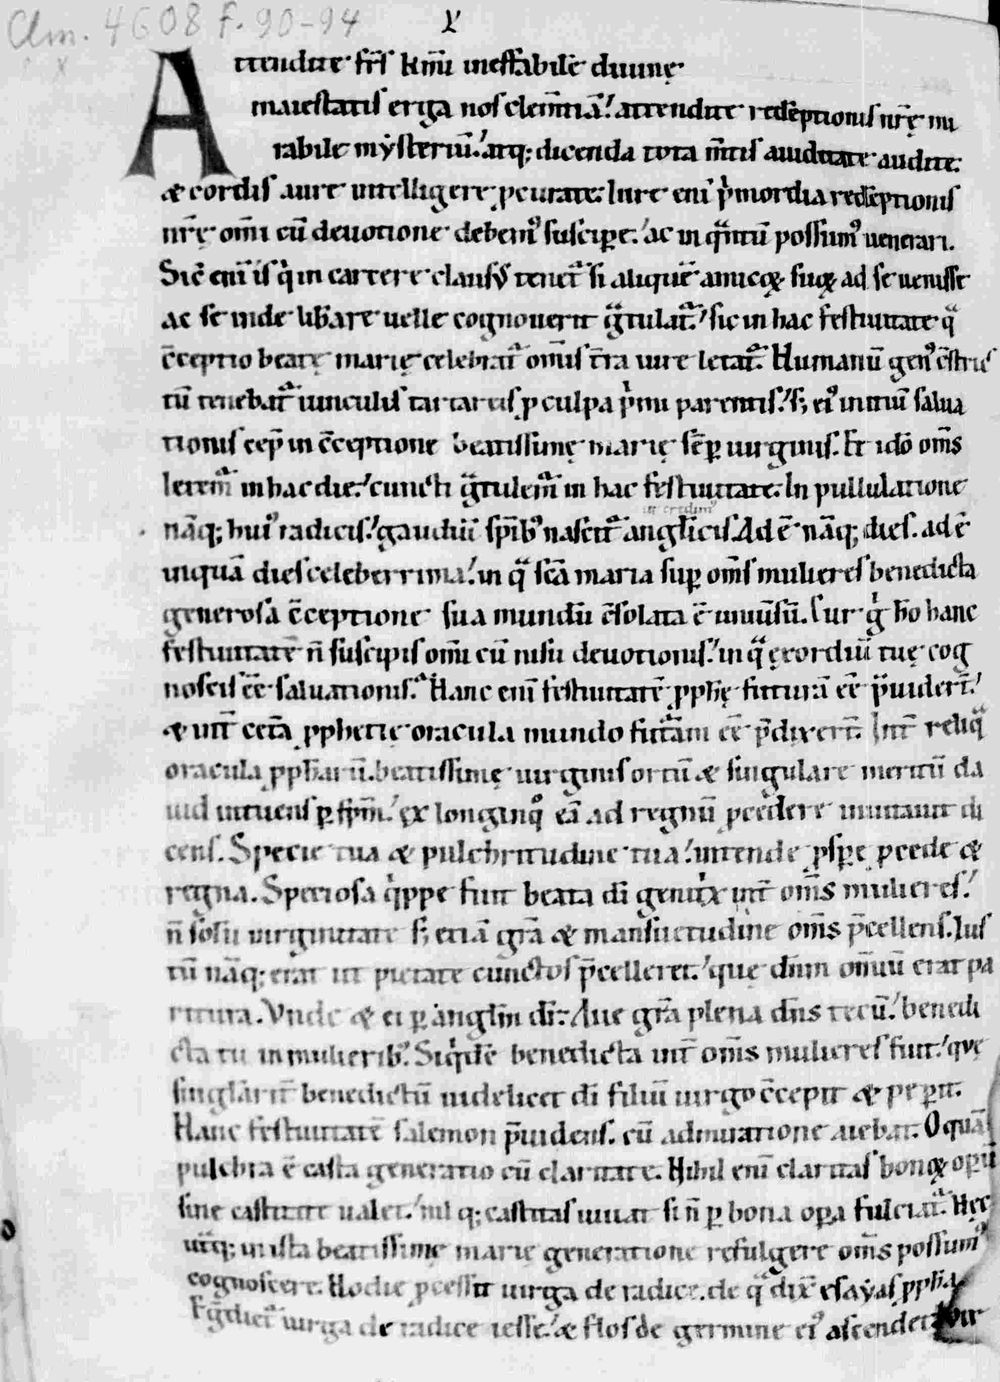 Clm. 4608 f. 90-94
Attendite fr̄s kmī ineffabilē diuinę
maiestatis erga nos clem̄tiā! attendite redēptionis nr̄ę mi
rabile mẏsteriū! atq; dicenda tota m̄tis auiditate audite.
& cordis aure intelligere ꝓcurate. Iure eni p̄mordia redēptionis
nr̄ę om̄i cū deuotione debem᷒ suscipe. ac in qᷓntū possum᷒ uenerari.
Sic̄ eni is qͥ in carcere clausus tenet᷑ si aliquē amicoꝝ suoꝝ ad se uenisse
ac se inde lib̄are uelle cognouerit gᷓtulat᷑! sic in hac festiuitate qᷓ
c̄ceptio beatę marię celebrat᷑ om̄is t̄ra iure letat᷑. Humanū gen᷒ c̄stric
tū tenebat᷑ uinculis tartareis ꝓ culpa pͥmi parentis! s; ei᷒ initiū salua
tionis cep̄ in c̄ceptione beatissimę marię sēꝑ uirginis. Et idō om̄s
letem᷑ in hac die! cuncti gᷓtulem᷑ in hac festiuitate. In pullulatione
nāq; hui᷒ radicis! gaudiū sp̄ib᷒ nascit᷑ anglicis. Adē nāq; dies. adē
inquā dies celeberrima! in qᷓ sc̄a maria suꝑ om̄s mulieres benedicta
generosa c̄ceptione sua mundū c̄solata ē uniūsū. Cur gͥ h̄o hanc
festiuitatē n̄ suscipis om̄i cū nisu deuotionis! in qᷓ exordiū tuę cog
noscis ēē saluationis? Hanc eni festiuitatē ꝓphę futurā ēē p̄uider̄t!
& int̄ cet̄a ꝓphetię oracula mundo futᷓam ēē p̄dixer̄t. Int̄ reliqᷓ
oracula ꝓph̄arū. beatissimę uirginis ortū & singulare meritū da
uid intuens ꝑ sp̄m! ex longinqͦ eā ad regnū ꝓcedere inuitauit di
cens. Specie tua & pulchritudine tua! intende ꝓspe ꝓcede &
regna. Speciosa qͥppe fuit beata di genitͥx int̄ om̄s mulieres!
n̄ solū uirginitate s; etiā gr̄a & mansuetudine om̄s p̄cellens. Ius
tū nāq; erat ut pietate cunctos p̄celleret! que dn̄m om̄iū erat pa
ritura. Vnde & ei ꝑ angl̄m dr̄. Aue gr̄a plena dn̄s tecū! benedi
cta tu in mulierib᷒. Siqͥdē benedicta int̄ om̄s mulieres fuit! quę
singlārit̄ benedictū uidelicet di filiū uirgo c̄cepit & peꝑit.
Hanc festiuitatē salemon p̄uidens. cū admiratione aiebat. O quā
pulchra ē casta generatio cū claritate. Nihil eni claritas bonoꝝ opꝛū
sine castitate ualet! nil q; castitas iuuat si n̄ ꝑ bona oꝑa fulciat᷑. Hęc
utͣq; in ista beatissimę marię generatione refulgere om̄s possum᷒
cognoscere. Hodie ꝓcessit uirga de radice. de qᷓ dix̄ esaẏas ꝓph̄a
Egͣdiet᷑ uirga de radice iesse! & flos de germine ei᷒ ascendet